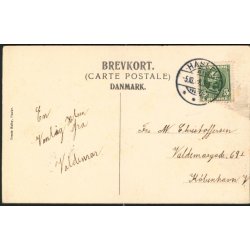 BREVKORT.
(CARTE POSTALE)
DANMARK.
HASLE
En
Venlig Hilsen
fra
Valdemar
Fru M Christoffersen
Valdemarsgade
København V